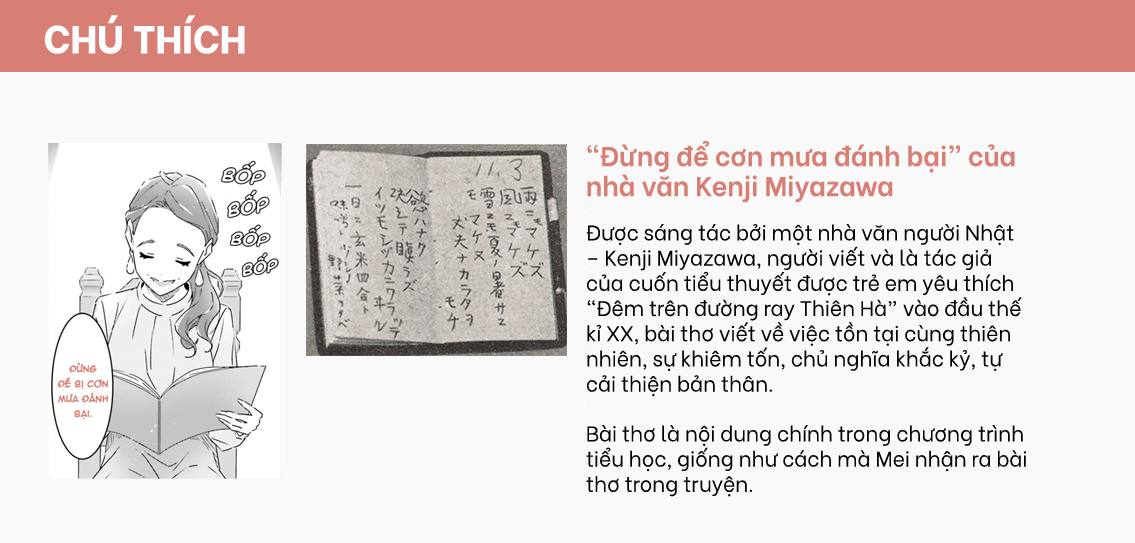 CHÚ THÍCH
BỐP
BỐP
BỐP
BỐP
ĐỪNG
ĐỂ BỊ CƠN
MƯA ĐÁNH
BẠI.
11. 3
雨ニモマケズ
風ニモマケズ
雪ニモ夏ノ暑サニ
モマケヌ
丈夫ナカラダヲ
モチ
慾ハナク
決シテ瞋ラズ
イツモシヅカニワラッテ
ヰル
一日ニ玄米四合ト
味噌ト少シノ
野菜ヲタベ
“Đừng để cơn mưa đánh bại” của
nhà văn Kenji Miyazawa
Được sáng tác bởi một nhà văn người Nhật
– Kenji Miyazawa, người viết và là tác giả
của cuốn tiểu thuyết được trẻ em yêu thích
“Đêm trên đường ray Thiên Hà” vào đầu thế
kỉ XX, bài thơ viết về việc tồn tại cùng thiên
nhiên, sự khiêm tốn, chủ nghĩa khắc kỷ, tự
cải thiện bản thân.
Bài thơ là nội dung chính trong chương trình
tiểu học, giống như cách mà Mei nhận ra bài
thơ trong truyện.